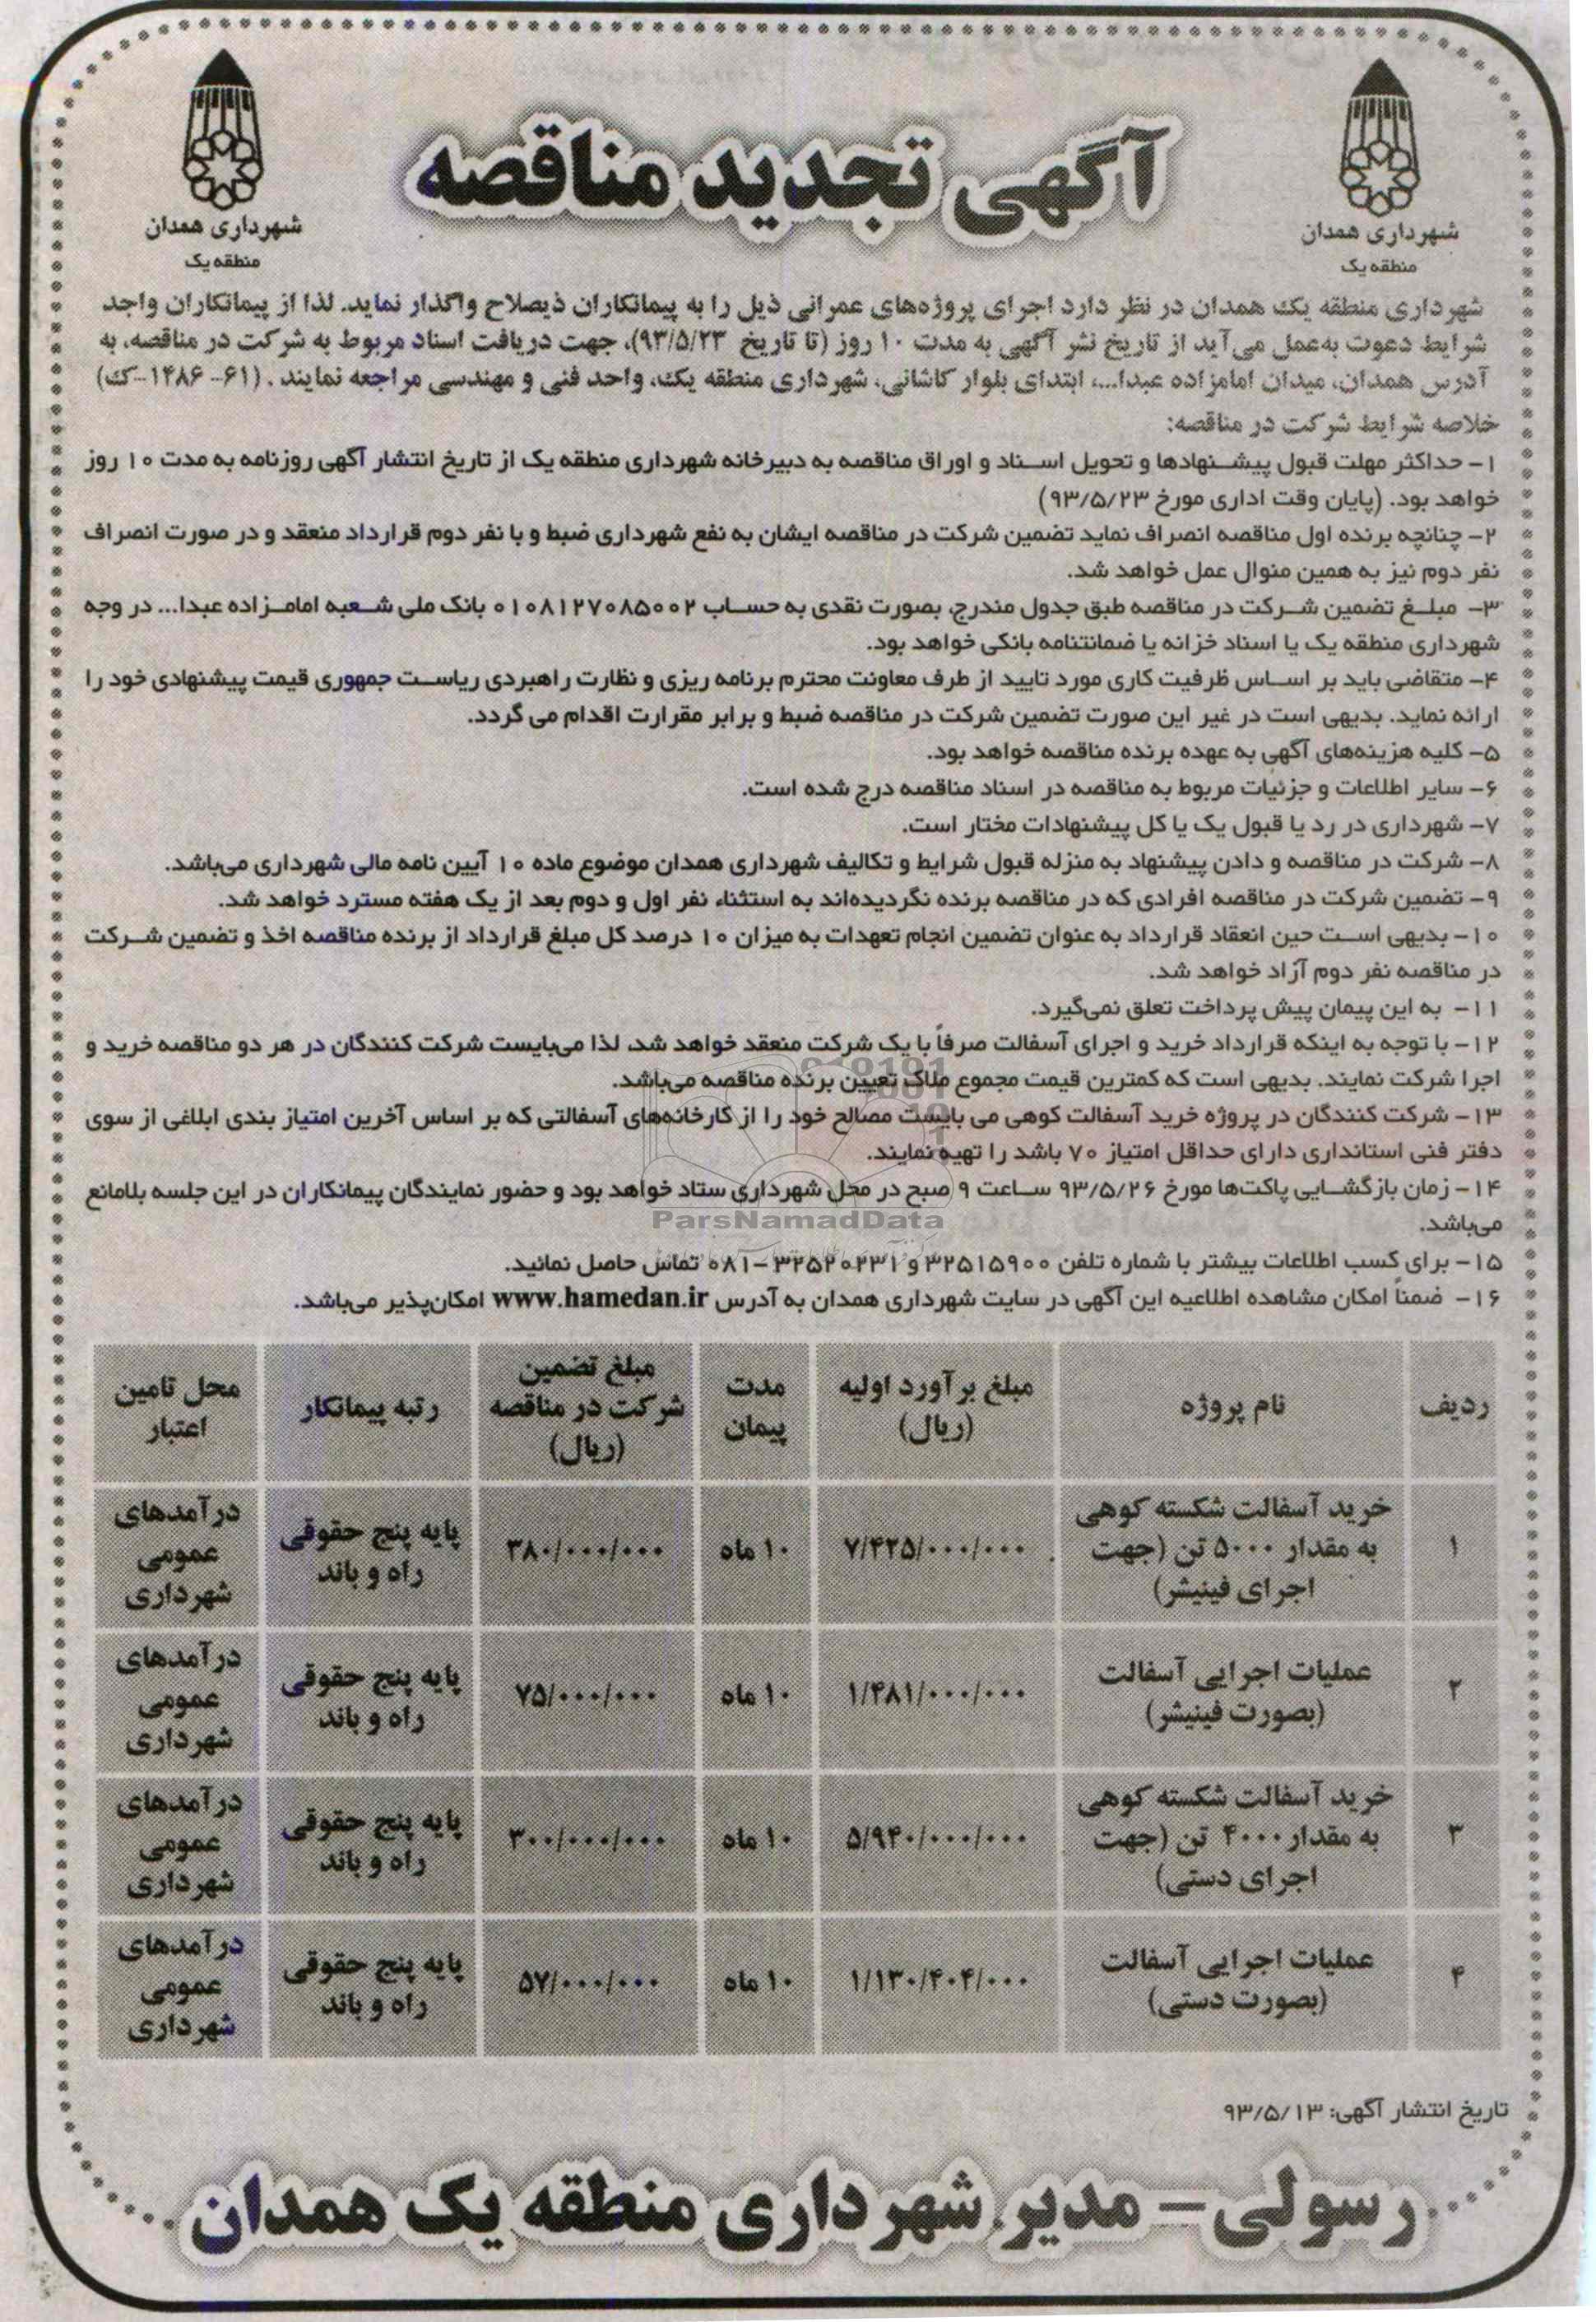 آگهی تجدید مناقصه
شهرداری همدان
منطقه یک
شهرداری همدان
منطقه یک
شهرداری منطقه یک همدان در نظر دارد اجرای پروژه‌های عمرانی ذیل را به پیمانکاران ذیصلاح واگذار نماید. لذا از پیمانکاران واجد
شرایط دعوت به‌عمل می‌آید از تاریخ نشر آگهی به مدت ۱۰ روز (تا تاریخ ۹۳/۵/۲۳)، جهت دریافت اسناد مربوط به شرکت در مناقصه، به
آدرس همدان، میدان امامزاده عبدا...، ابتدای بلوار کاشانی، شهرداری منطقه یک، واحد فنی و مهندسی مراجعه نمایند. (۶۱- ۱۴۸۶-ک)
خلاصه شرایط شرکت در مناقصه:
۱- حداکثر مهلت قبول پیشنهادها و تحویل اسناد و اوراق مناقصه به دبیرخانه شهرداری منطقه یک از تاریخ انتشار آگهی روزنامه به مدت ۱۰ روز
خواهد بود. (پایان وقت اداری مورخ ۹۳/۵/۲۳)
۲- چنانچه برنده اول مناقصه انصراف نماید تضمین شرکت در مناقصه ایشان به نفع شهرداری ضبط و با نفر دوم قرارداد منعقد و در صورت انصراف
نفر دوم نیز به همین منوال عمل خواهد شد.
۳- مبلغ تضمین شرکت در مناقصه طبق جدول مندرج، بصورت نقدی به حساب ۰۱۰۸۱۲۷۰۸۵۰۰۲ بانک ملی شعبه امامزاده عبدا... در وجه
شهرداری منطقه یک یا اسناد خزانه یا ضمانتنامه بانکی خواهد بود.
۴- متقاضی باید بر اساس ظرفیت کاری مورد تایید از طرف معاونت محترم برنامه ریزی و نظارت راهبردی ریاست جمهوری قیمت پیشنهادی خود را
ارائه نماید. بدیهی است در غیر این صورت تضمین شرکت در مناقصه ضبط و برابر مقرارت اقدام می گردد.
۵- کلیه هزینه‌های آگهی به عهده برنده مناقصه خواهد بود.
۶- سایر اطلاعات و جزئیات مربوط به مناقصه در اسناد مناقصه درج شده است.
۷- شهرداری در رد یا قبول یک یا کل پیشنهادات مختار است.
۸- شرکت در مناقصه و دادن پیشنهاد به منزله قبول شرایط و تکالیف شهرداری همدان موضوع ماده ۱۰ آیین نامه مالی شهرداری می‌باشد.
۹- تضمین شرکت در مناقصه افرادی که در مناقصه برنده نگردیده‌اند به استثناء نفر اول و دوم بعد از یک هفته مسترد خواهد شد.
۱۰- بدیهی است حین انعقاد قرارداد به عنوان تضمین انجام تعهدات به میزان ۱۰ درصد کل مبلغ قرارداد از برنده مناقصه اخذ و تضمین شرکت
در مناقصه نفر دوم آزاد خواهد شد.
۱۱- به این پیمان پیش پرداخت تعلق نمی‌گیرد.
۱۲- با توجه به اینکه قرارداد خرید و اجرای آسفالت صرفاً با یک شرکت منعقد خواهد شد، لذا می‌بایست شرکت کنندگان در هر دو مناقصه خرید و
اجرا شرکت نمایند. بدیهی است که کمترین قیمت مجموع ملاک تعیین برنده مناقصه می‌باشد.
۱۳- شرکت کنندگان در پروژه خرید آسفالت کوهی می بایست مصالح خود را از کارخانه‌های آسفالتی که بر اساس آخرین امتیاز بندی ابلاغی از سوی
دفتر فنی استانداری دارای حداقل امتیاز ۷۰ باشد را تهیه نمایند.
۱۴- زمان بازگشایی پاکت‌ها مورخ ۹۳/۵/۲۶ ساعت ۹ صبح در محل شهرداری ستاد خواهد بود و حضور نمایندگان پیمانکاران در این جلسه بلامانع
می‌باشد.
ParsNamadData
۱۵- برای کسب اطلاعات بیشتر با شماره تلفن ۳۲۵۱۵۹۰۰ و ۳۲۵۲۰۲۳۱-۰۸۱ تماس حاصل نمائید.
۱۶- ضمناً امکان مشاهده اطلاعیه این آگهی در سایت شهرداری همدان به آدرس www.hamedan.ir امکان‌پذیر می‌باشد.
ردیف | نام پروژه | مبلغ برآورد اولیه (ریال) | مدت پیمان | مبلغ تضمین شرکت در مناقصه (ریال) | رتبه پیمانکار | محل تامین اعتبار
۱ | خرید آسفالت شکسته کوهی به مقدار ۵۰۰۰ تن (جهت اجرای فینیشر) | ۷/۴۲۵/۰۰۰/۰۰۰ | ۱۰ ماه | ۳۸۰/۰۰۰/۰۰۰ | پایه پنج حقوقی راه و باند | درآمدهای عمومی شهرداری
۲ | عملیات اجرایی آسفالت (بصورت فینیشر) | ۱/۴۸۱/۰۰۰/۰۰۰ | ۱۰ ماه | ۷۵/۰۰۰/۰۰۰ | پایه پنج حقوقی راه و باند | درآمدهای عمومی شهرداری
۳ | خرید آسفالت شکسته کوهی به مقدار ۴۰۰۰ تن (جهت اجرای دستی) | ۵/۹۴۰/۰۰۰/۰۰۰ | ۱۰ ماه | ۳۰۰/۰۰۰/۰۰۰ | پایه پنج حقوقی راه و باند | درآمدهای عمومی شهرداری
۴ | عملیات اجرایی آسفالت (بصورت دستی) | ۱/۱۳۰/۴۰۴/۰۰۰ | ۱۰ ماه | ۵۷/۰۰۰/۰۰۰ | پایه پنج حقوقی راه و باند | درآمدهای عمومی شهرداری
تاریخ انتشار آگهی: ۹۳/۵/۱۳
رسولی - مدیر شهرداری منطقه یک همدان